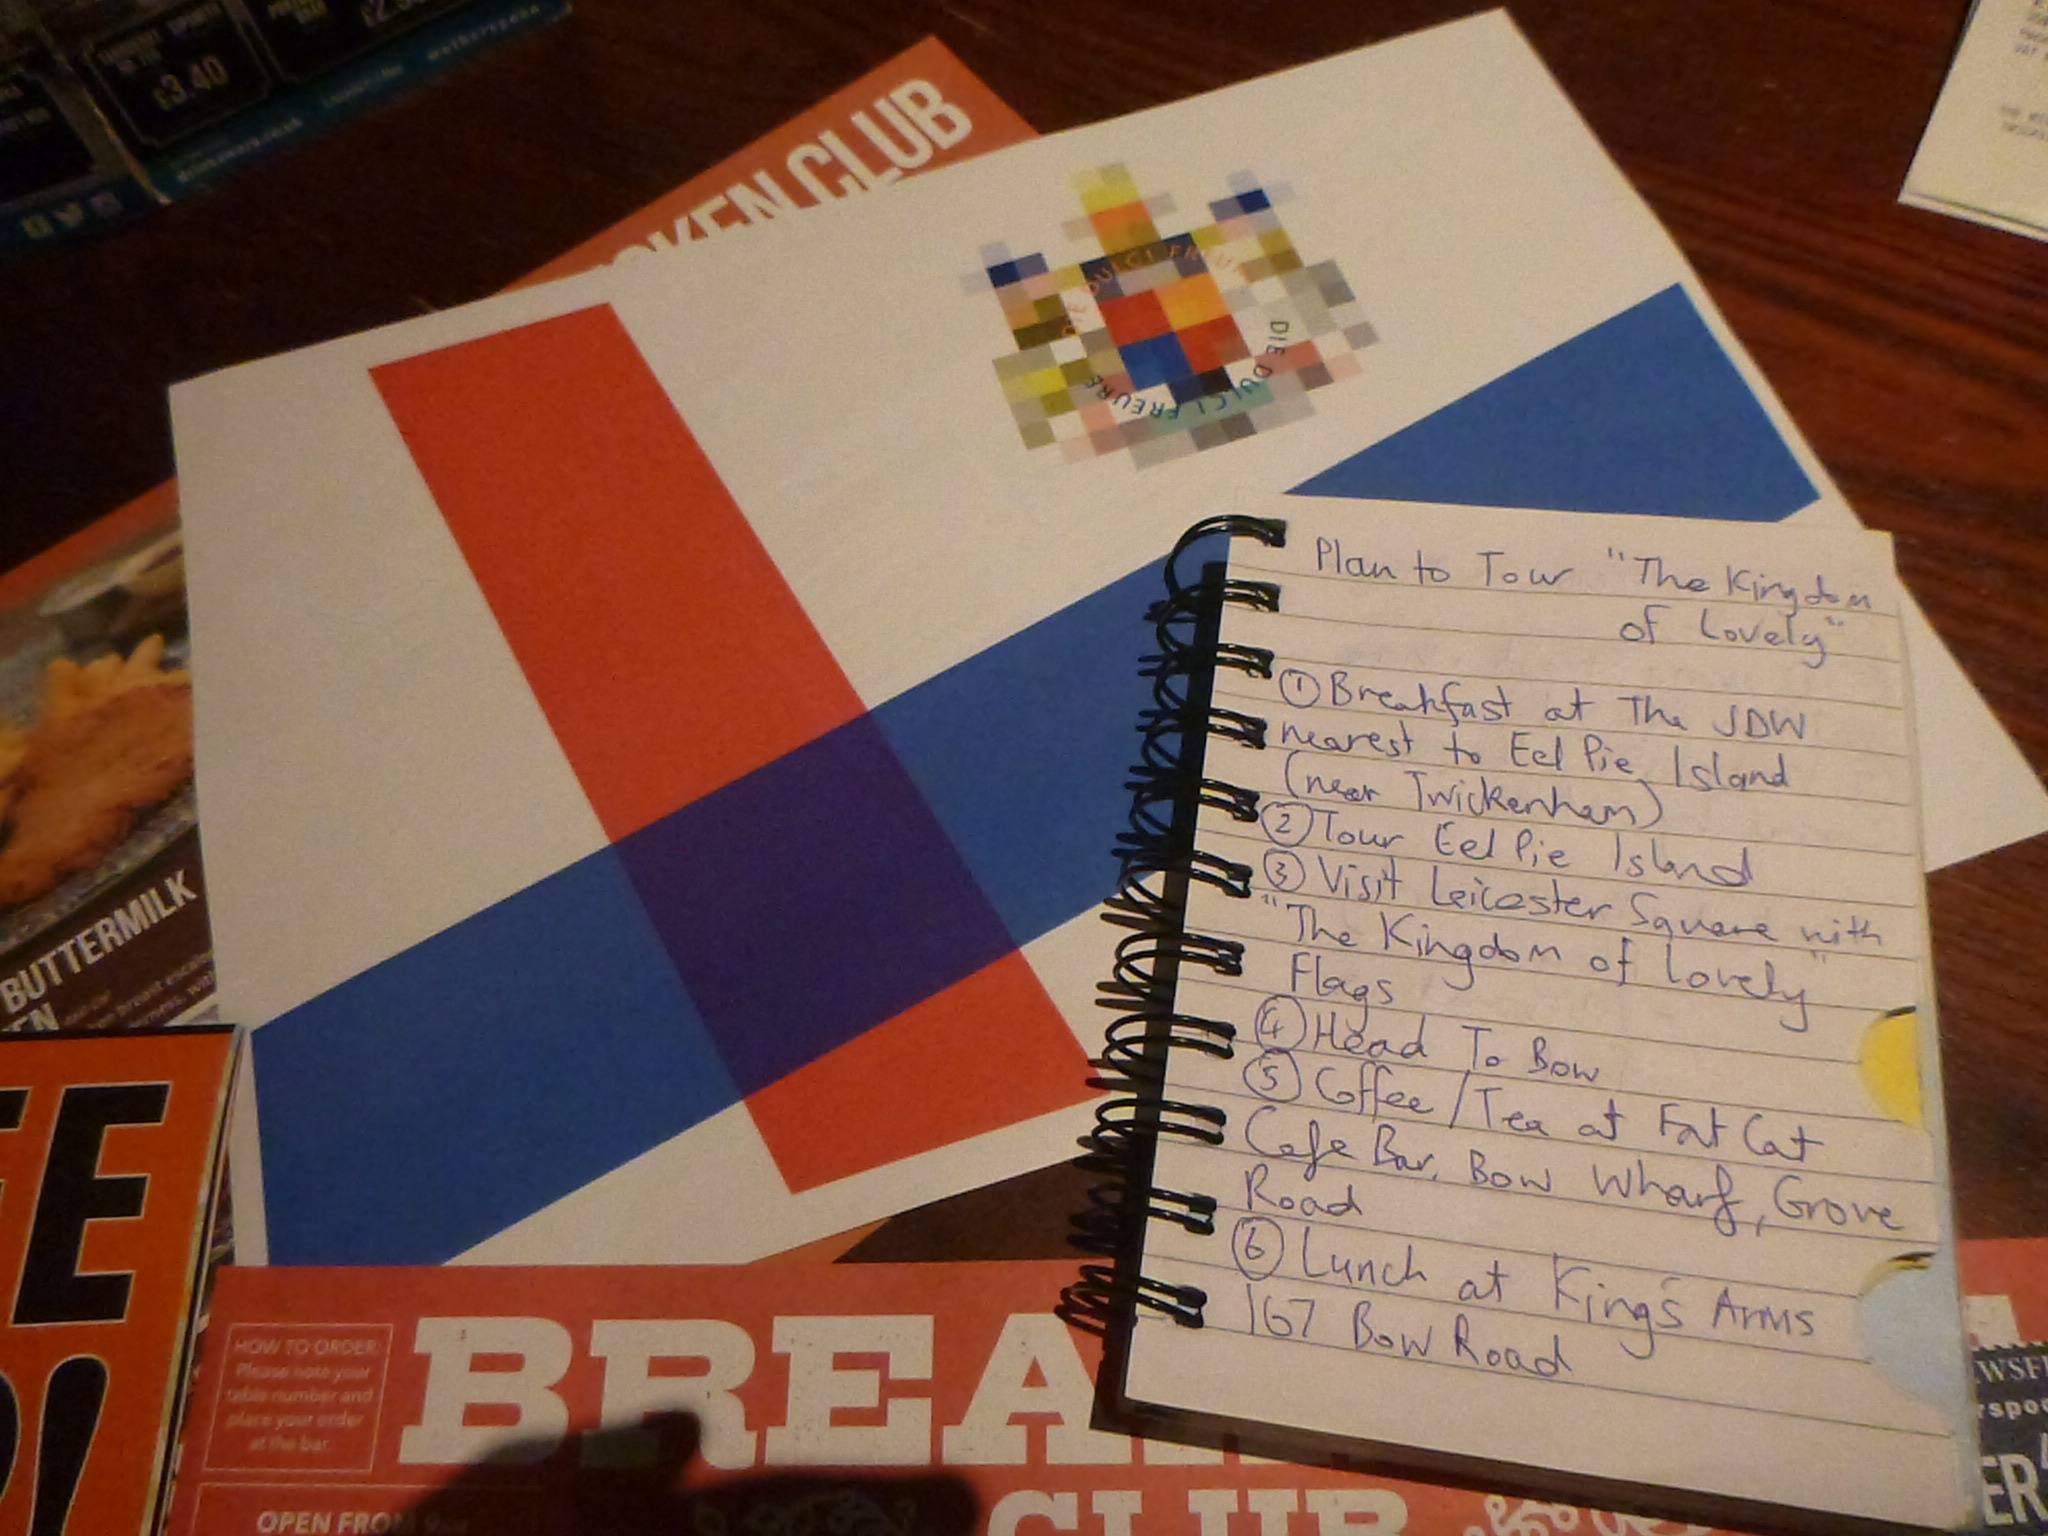 £3.40
wetherspoon
KEN CLUB
DIE DULCI FREURE
DIE DULCI FREURE
Plan to Tour "The Kingdom
of Lovely"
① Breakfast at The JDW
nearest to Eel Pie Island
(near Twickenham)
② Tour Eel Pie Island
③ Visit Leicester Square with
"The Kingdom of Lovely"
Flags
④ Head To Bow
⑤ Coffee / Tea at Fat Cat
Cafe Bar, Bow Wharf, Grove
Road
⑥ Lunch at King's Arms
167 Bow Road
BUTTERMILK
EN
HOW TO ORDER:
Please note your
table number and
place your order
at the bar.
BREA
CLUB
OPEN FROM